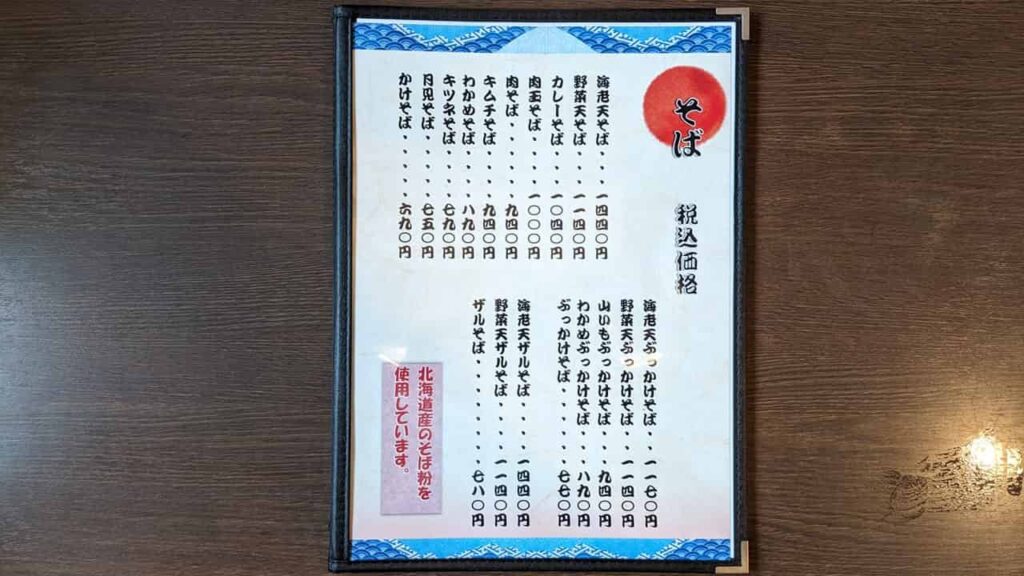 そば 税込価格
海老天そば・・・一四四〇円
野菜天そば・・・一一四〇円
カレーそば・・・一〇四〇円
肉玉そば・・・一〇〇〇円
肉そば・・・・・九四〇円
キムチそば・・・九四〇円
わかめそば・・・・八九〇円
キツネそば・・・・七九〇円
月見そば・・・・・七五〇円
かけそば・・・・・六九〇円
海老天ぶっかけそば・・一一七〇円
野菜天ぶっかけそば・・一一四〇円
山いもぶっかけそば・・・九四〇円
わかめぶっかけそば・・・八九〇円
ぶっかけそば・・・・・・七七〇円
海老天ザルそば・・・・一四四〇円
野菜天ザルそば・・・・一一四〇円
ザルそば・・・・・・・・七八〇円
北海道産のそば粉を
使用しています。